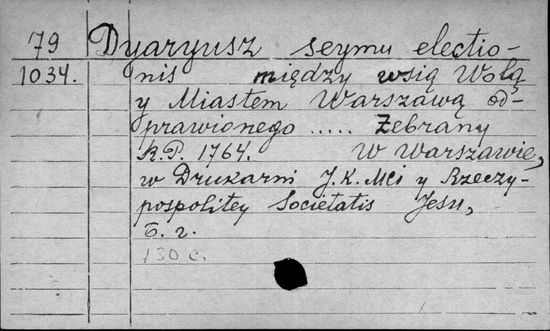 79 Dyaryusz seymu electio-
1034. nis między wsią Wolą
y Miastem Warszawą od-
prawionego ..... Zebrany
R.P. 1764. W Warszawie,
w Drukarni J.K.Mci y Rzeczy-
pospolitey Societatis Jesu,
б. г.
130 с.